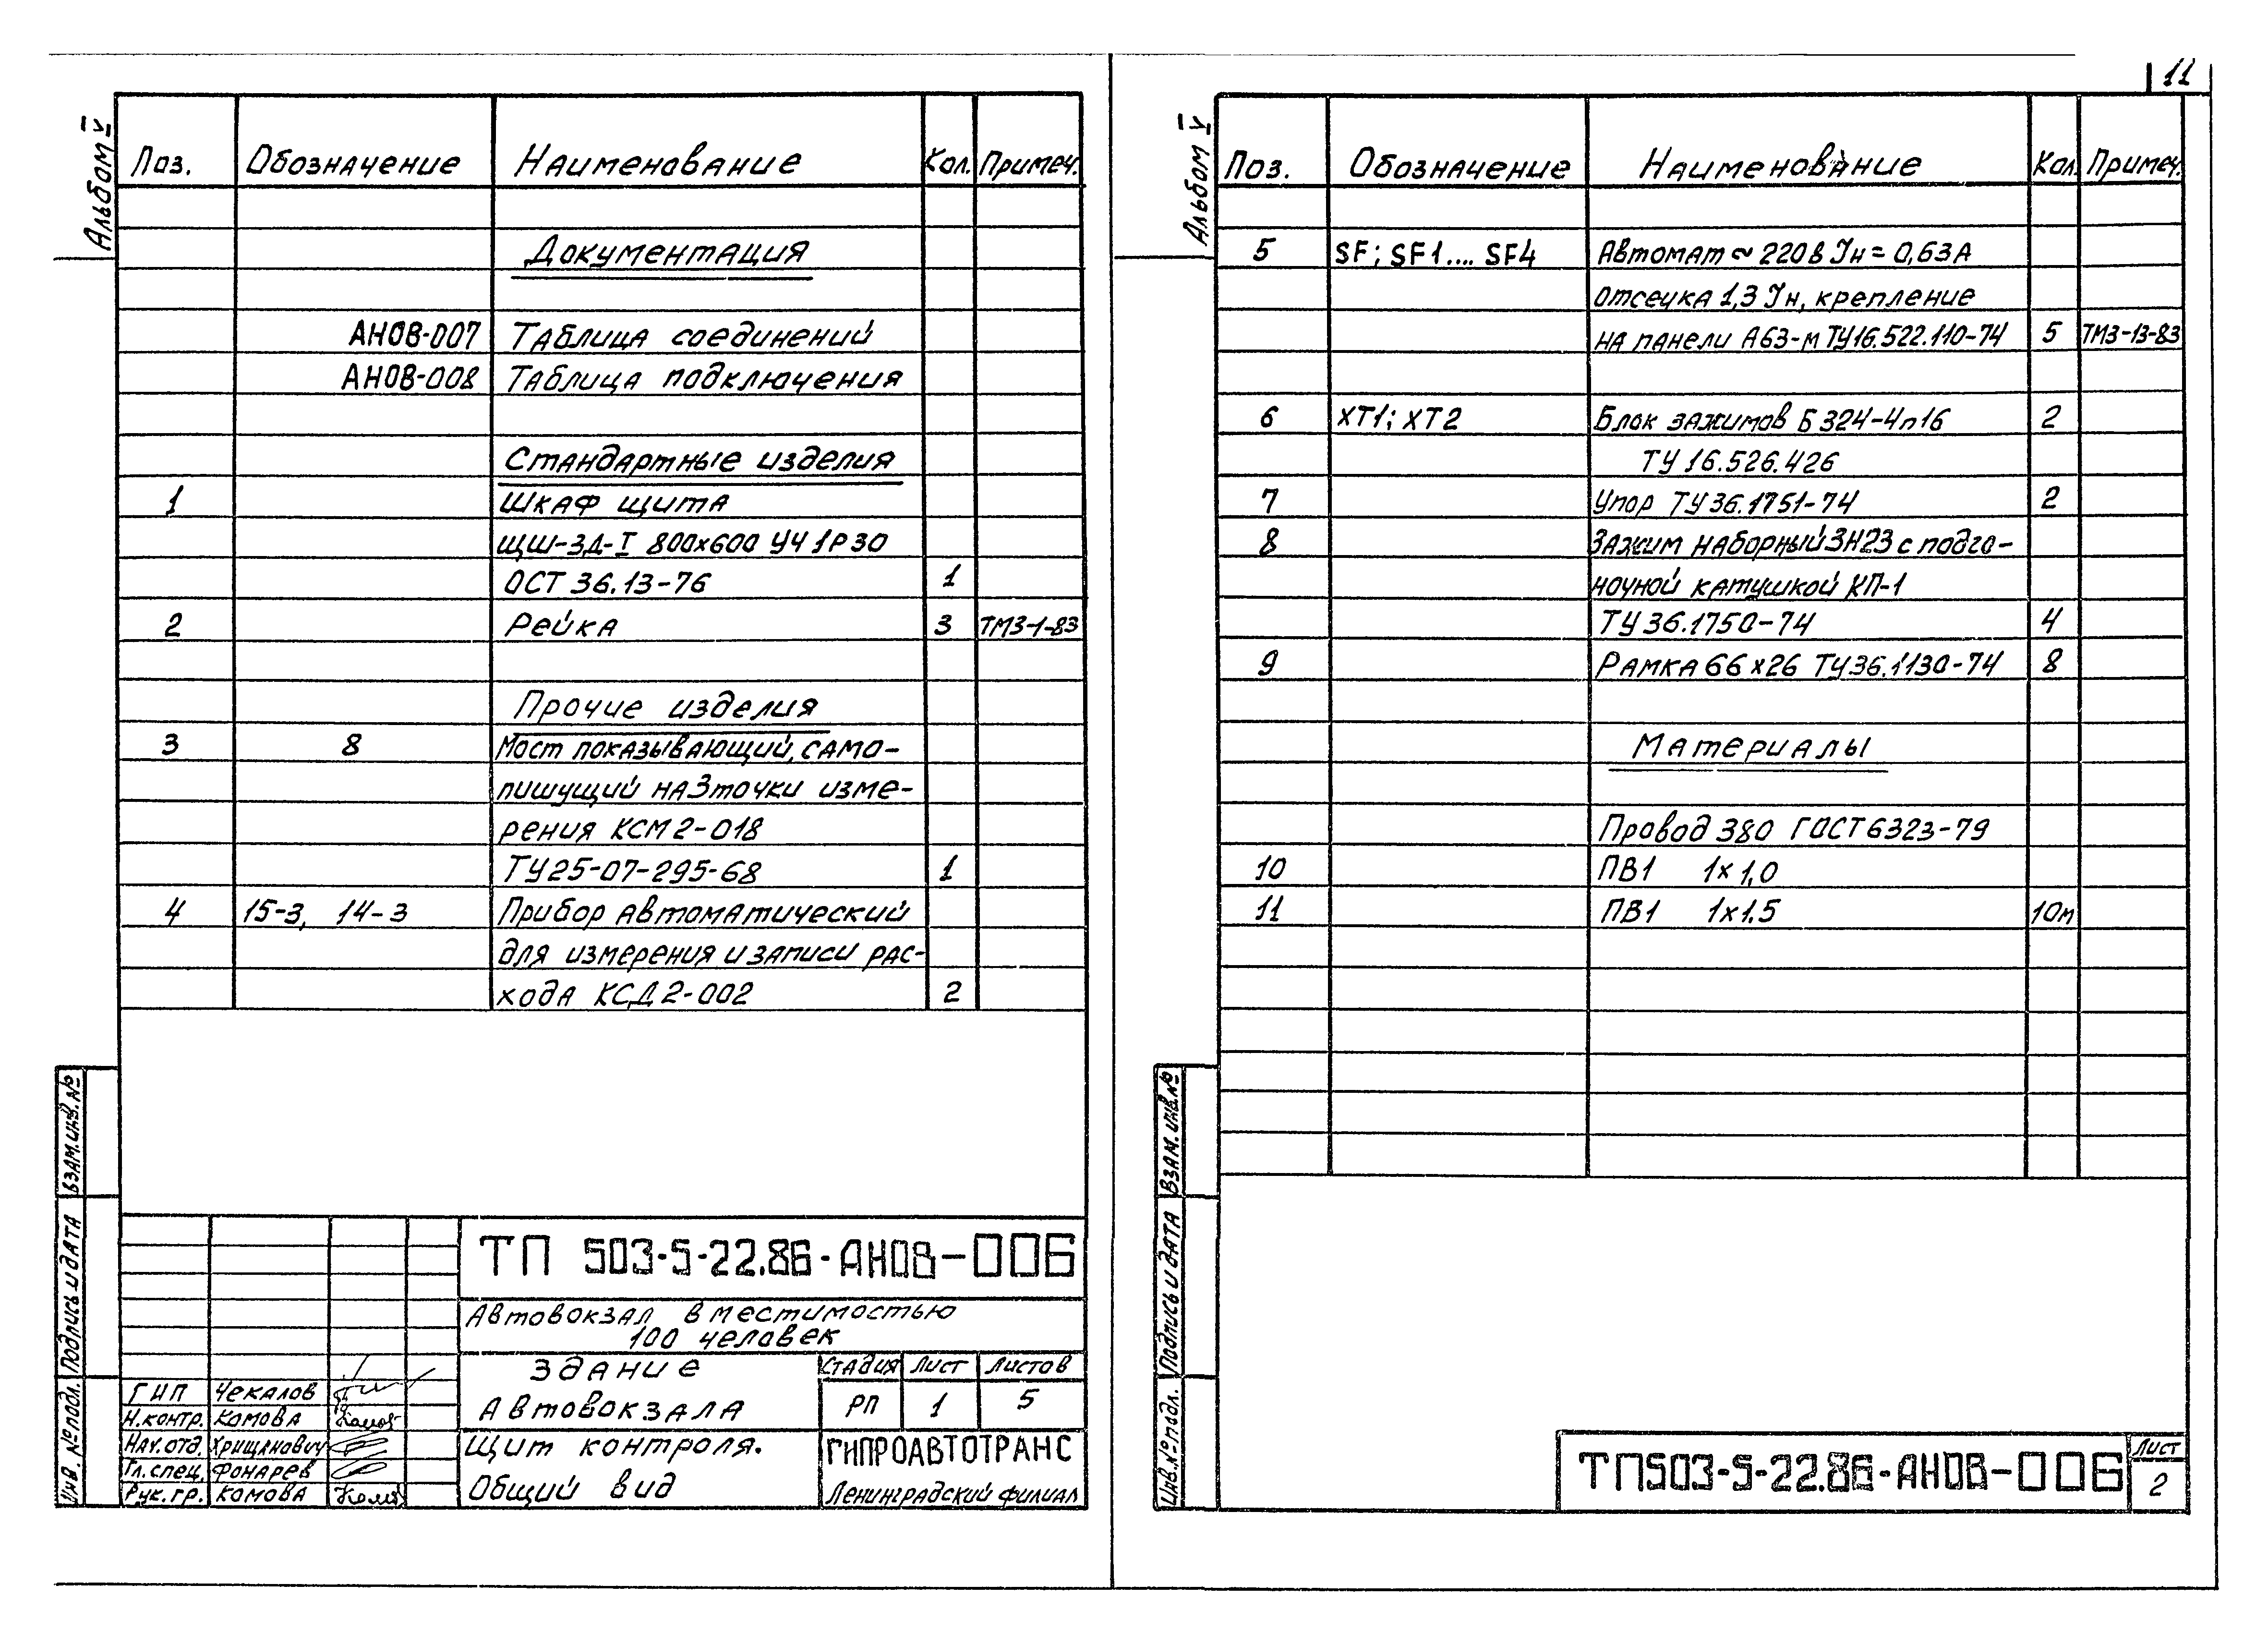 11
Альбом V
Поз. Обозначение Наименование Кол. Примеч.
Документация
АНОВ-007 Таблица соединений
АНОВ-008 Таблица подключения
Стандартные изделия
1 Шкаф щита
ЩШ-ЗД-I 800х600 УЧ 1Р30
ОСТ 36.13-76 1
2 Рейка 3 ТМ3-1-83
Прочие изделия
3 8 Мост показывающий, само-
пишущий на 3 точки изме-
рения КСМ2-018
ТУ25-07-295-68 1
4 15-3, 14-3 Прибор автоматический
для измерения и записи рас-
хода КСД2-002 2
Взам. инв. №
Подпись и дата
Инв. № подл.
ТП 503-5-22.86-АНОВ-006
Автовокзал вместимостью
100 человек
Здание
Автовокзала
Стадия Лист Листов
РП 1 5
ГИП Чекалов
Н.контр. Комова
Нач.отд. Хрищанович
Гл.спец. Фонарев
Рук.гр. Комова
Щит контроля.
Общий вид
ГИПРОАВТОТРАНС
Ленинградский филиал
Альбом V
Поз. Обозначение Наименование Кол. Примеч.
5 SF; SF1.... SF4 Автомат ~ 220в Jн = 0,63А
отсечка 1,3 Jн, крепление
на панели А63-м ТУ16.522.110-74 5 ТМ3-13-83
6 ХТ1; ХТ2 Блок зажимов Б324-4п16 2
ТУ 16.526.426
7 Упор ТУ36.1751-74 2
8 Зажим наборный ЗН23 с подго-
ночной катушкой КП-1
ТУ36.1750-74 4
9 Рамка 66х26 ТУ36.1130-74 8
Материалы
Провод 380 ГОСТ6323-79
10 ПВ1 1х1,0
11 ПВ1 1х1,5 10м
Взам. инв. №
Подпись и дата
Инв. № подл.
ТП503-5-22.86-АНОВ-006
Лист
2